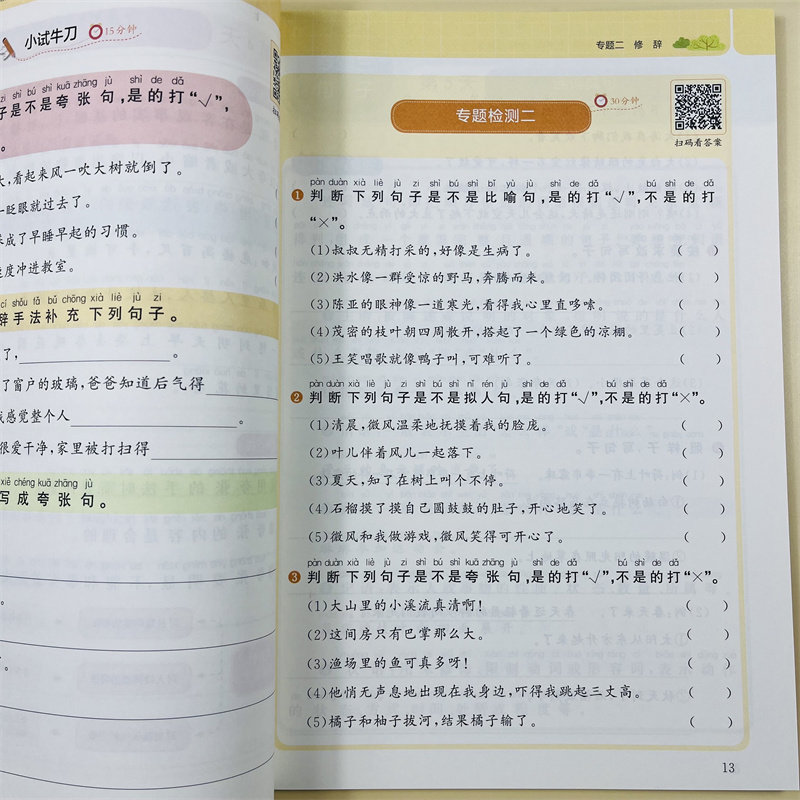 小试牛刀 15分钟
zi shì bú shì kuā zhāng jù shì de dǎ
子是不是夸张句,是的打“√”,
。
大,看起来风一吹大树就倒了。
一眨眼就过去了。
养成了早睡早起的习惯。
速度冲进教室。
cí shǒu fǎ bǔ chōng xià liè jù zi
辞手法补充下列句子。
了,____________。
了窗户的玻璃,爸爸知道后气得____________
我感觉整个人____________
很爱干净,家里被打扫得____________
xiě chéng kuā zhāng jù
写成夸张句。
专题二 修辞
专题检测二
30分钟
扫码看答案
pàn duàn xià liè jù zi shì bú shì bǐ yù jù shì de dǎ bú shì de dǎ
1 判断下列句子是不是比喻句,是的打“√”,不是的打
“×”。
(1)叔叔无精打采的,好像是生病了。 ( )
(2)洪水像一群受惊的野马,奔腾而来。 ( )
(3)陈亚的眼神像一道寒光,看得我心里直哆嗦。 ( )
(4)茂密的枝叶朝四周散开,搭起了一个绿色的凉棚。 ( )
(5)王笑唱歌就像鸭子叫,可难听了。 ( )
pàn duàn xià liè jù zi shì bú shì nǐ rén jù shì de dǎ bú shì de dǎ
2 判断下列句子是不是拟人句,是的打“√”,不是的打“×”。
(1)清晨,微风温柔地抚摸着我的脸庞。 ( )
(2)叶儿伴着风儿一起落下。 ( )
(3)夏天,知了在树上叫个不停。 ( )
(4)石榴摸了摸自己圆鼓鼓的肚子,开心地笑了。 ( )
(5)微风和我做游戏,微风笑得可开心了。 ( )
pàn duàn xià liè jù zi shì bú shì kuā zhāng jù shì de dǎ bú shì de dǎ
3 判断下列句子是不是夸张句,是的打“√”,不是的打“×”。
(1)大山里的小溪流真清啊! ( )
(2)这间房只有巴掌那么大。 ( )
(3)渔场里的鱼可真多呀! ( )
(4)他悄无声息地出现在我身边,吓得我跳起三丈高。 ( )
(5)橘子和柚子拔河,结果橘子输了。 ( )
13